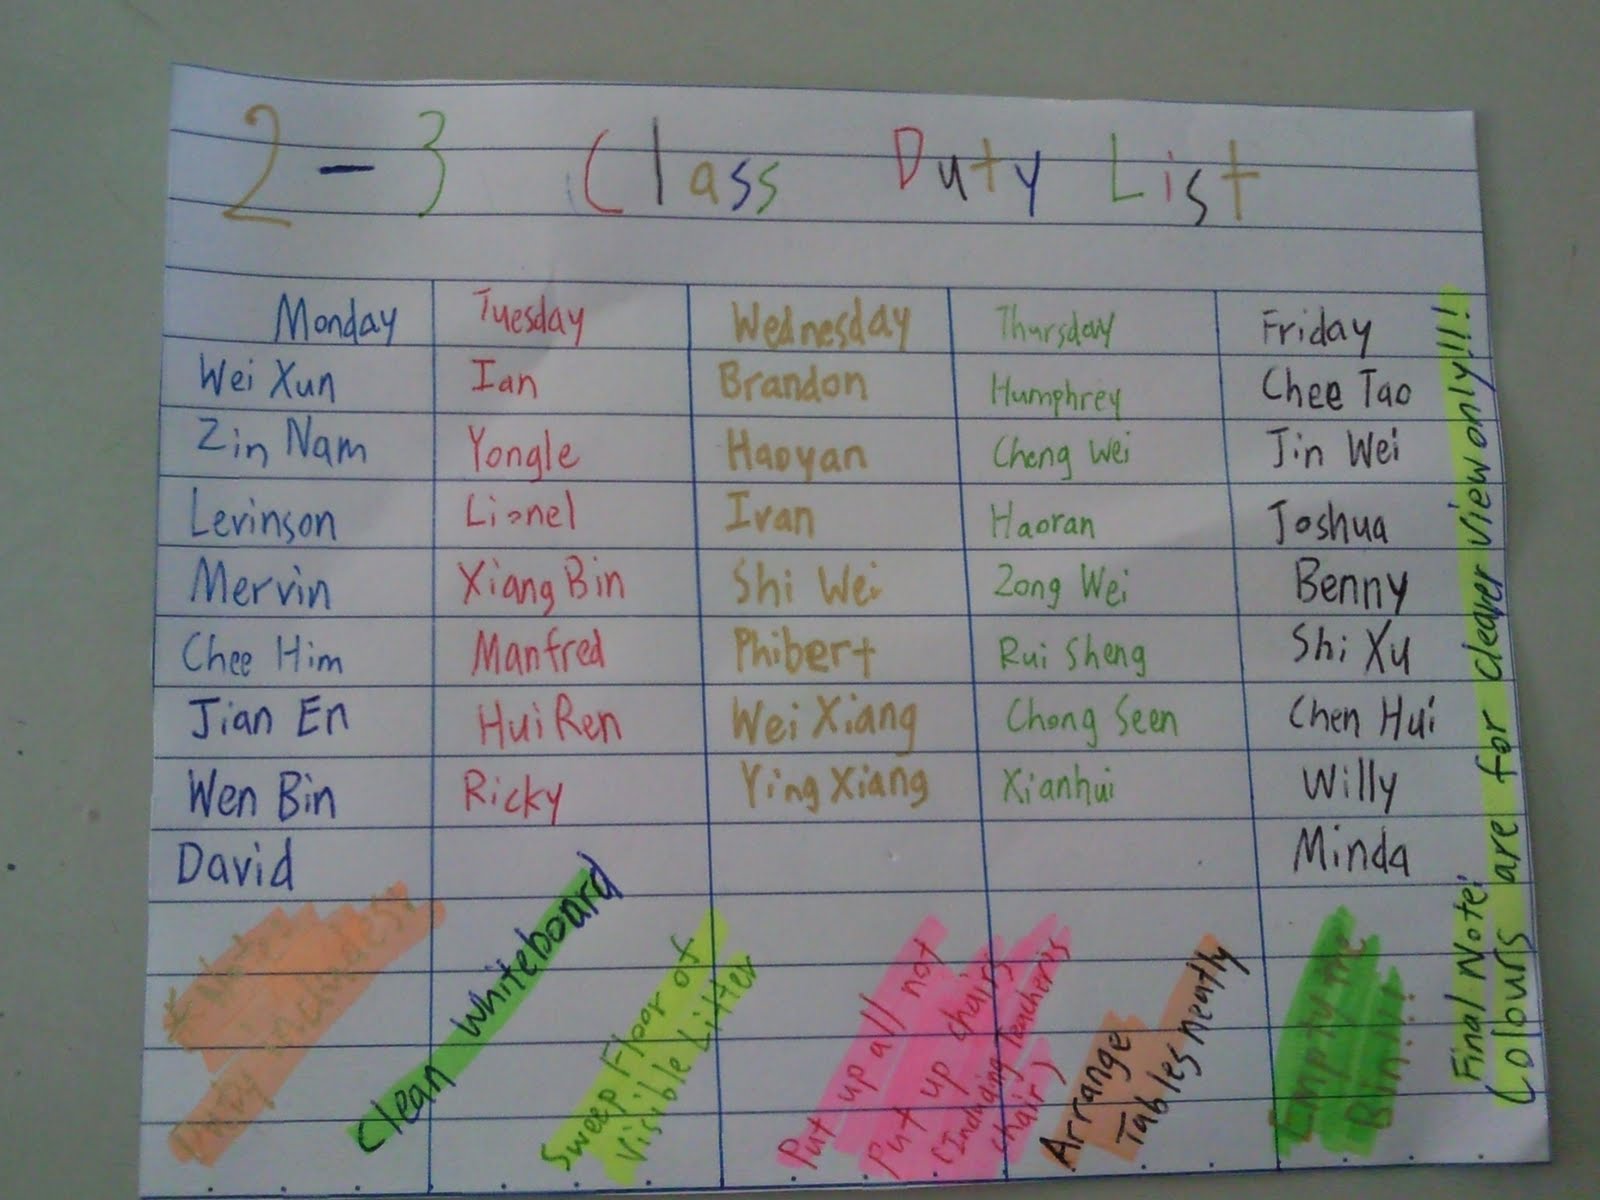 2-3 Class Duty List
Monday Tuesday Wednesday Thursday Friday
Wei Xun Ian Brandon Humphrey Chee Tao
Zin Nam Yongle Haoyan Cheng Wei Jin Wei
Levinson Lionel Ivan Haoran Joshua
Mervin Xiang Bin Shi Wei Zong Wei Benny
Chee Him Manfred Phibert Rui Sheng Shi Xu
Jian En Hui Ren Wei Xiang Chong Seen Chen Hui
Wen Bin Ricky Ying Xiang Xianhui Willy
David Minda
* Note:
Duty includes:
Clean Whiteboard
Sweep Floor of
Visible Litter
Put up all not
Put up chairs
(Including teacher's
chair)
Arrange
Tables neatly
Empty the
Bin!!!
Final Note:
Colours are for clearer view only!!!